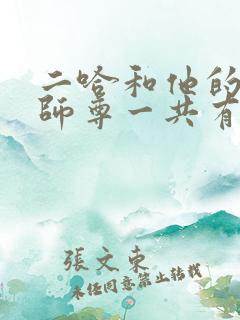 二哈和他的
師尊一共有
張文東
未经同意禁止转载